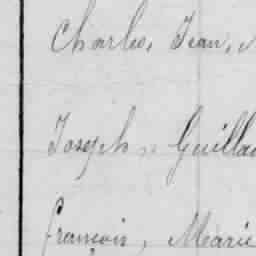 Charles, Jean,
Joseph, Guilla
françois, Marie